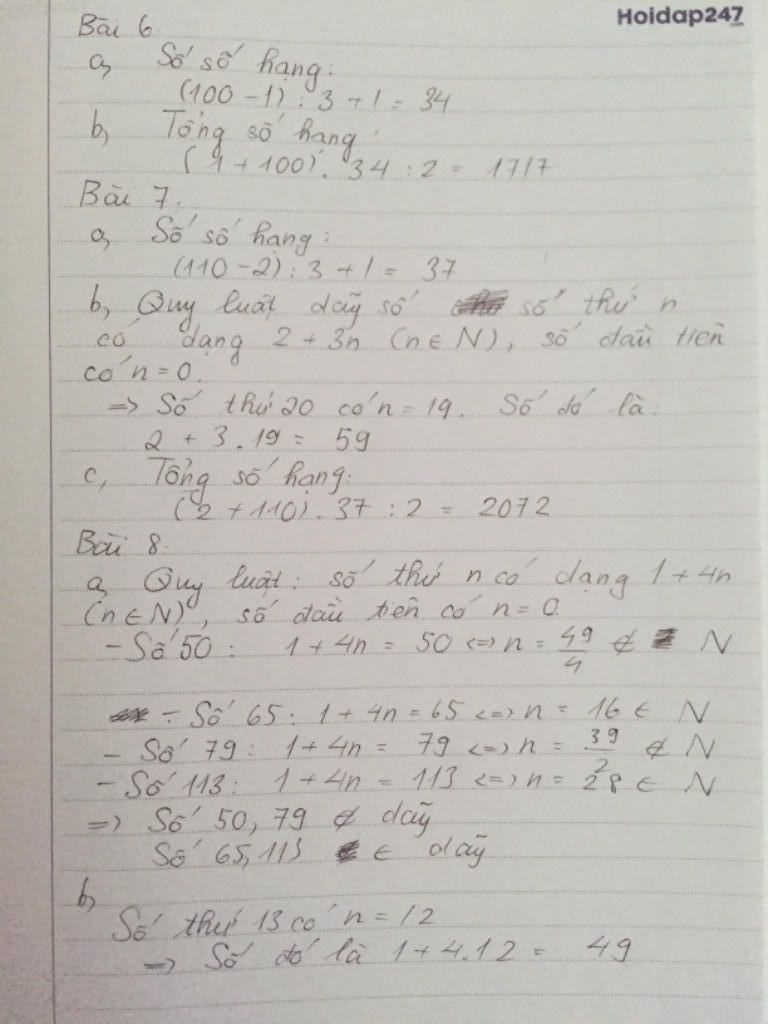 Hoidap247
Bài 6.
a, Số số hạng:
(100 - 1) : 3 + 1 = 34
b, Tổng số hạng:
(1 + 100). 34 : 2 = 1717
Bài 7.
a, Số số hạng:
(110 - 2) : 3 + 1 = 37
b, Quy luật dãy số số thứ n
có dạng 2 + 3n (n ∈ N), số đầu tiên
có n = 0.
=> Số thứ 20 có n = 19. Số đó là:
2 + 3.19 = 59
c, Tổng số hạng:
(2 + 110). 37 : 2 = 2072
Bài 8.
a, Quy luật: số thứ n có dạng 1 + 4n
(n ∈ N), số đầu tiên có n = 0.
- Số 50: 1 + 4n = 50 <=> n = 49/4 ∉ N
- Số 65: 1 + 4n = 65 <=> n = 16 ∈ N
- Số 79: 1 + 4n = 79 <=> n = 39/2 ∉ N
- Số 113: 1 + 4n = 113 <=> n = 28 ∈ N
=> Số 50, 79 ∉ dãy
Số 65, 113 ∈ dãy
b,
Số thứ 13 có n = 12
=> Số đó là 1 + 4.12 = 49